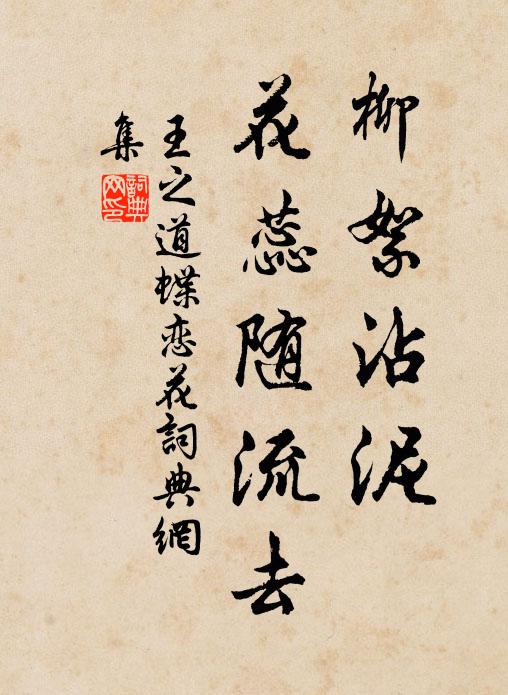 柳絮沾泥
花蕊随流去
王之道蝶恋花詞典網
集
詞典
网印